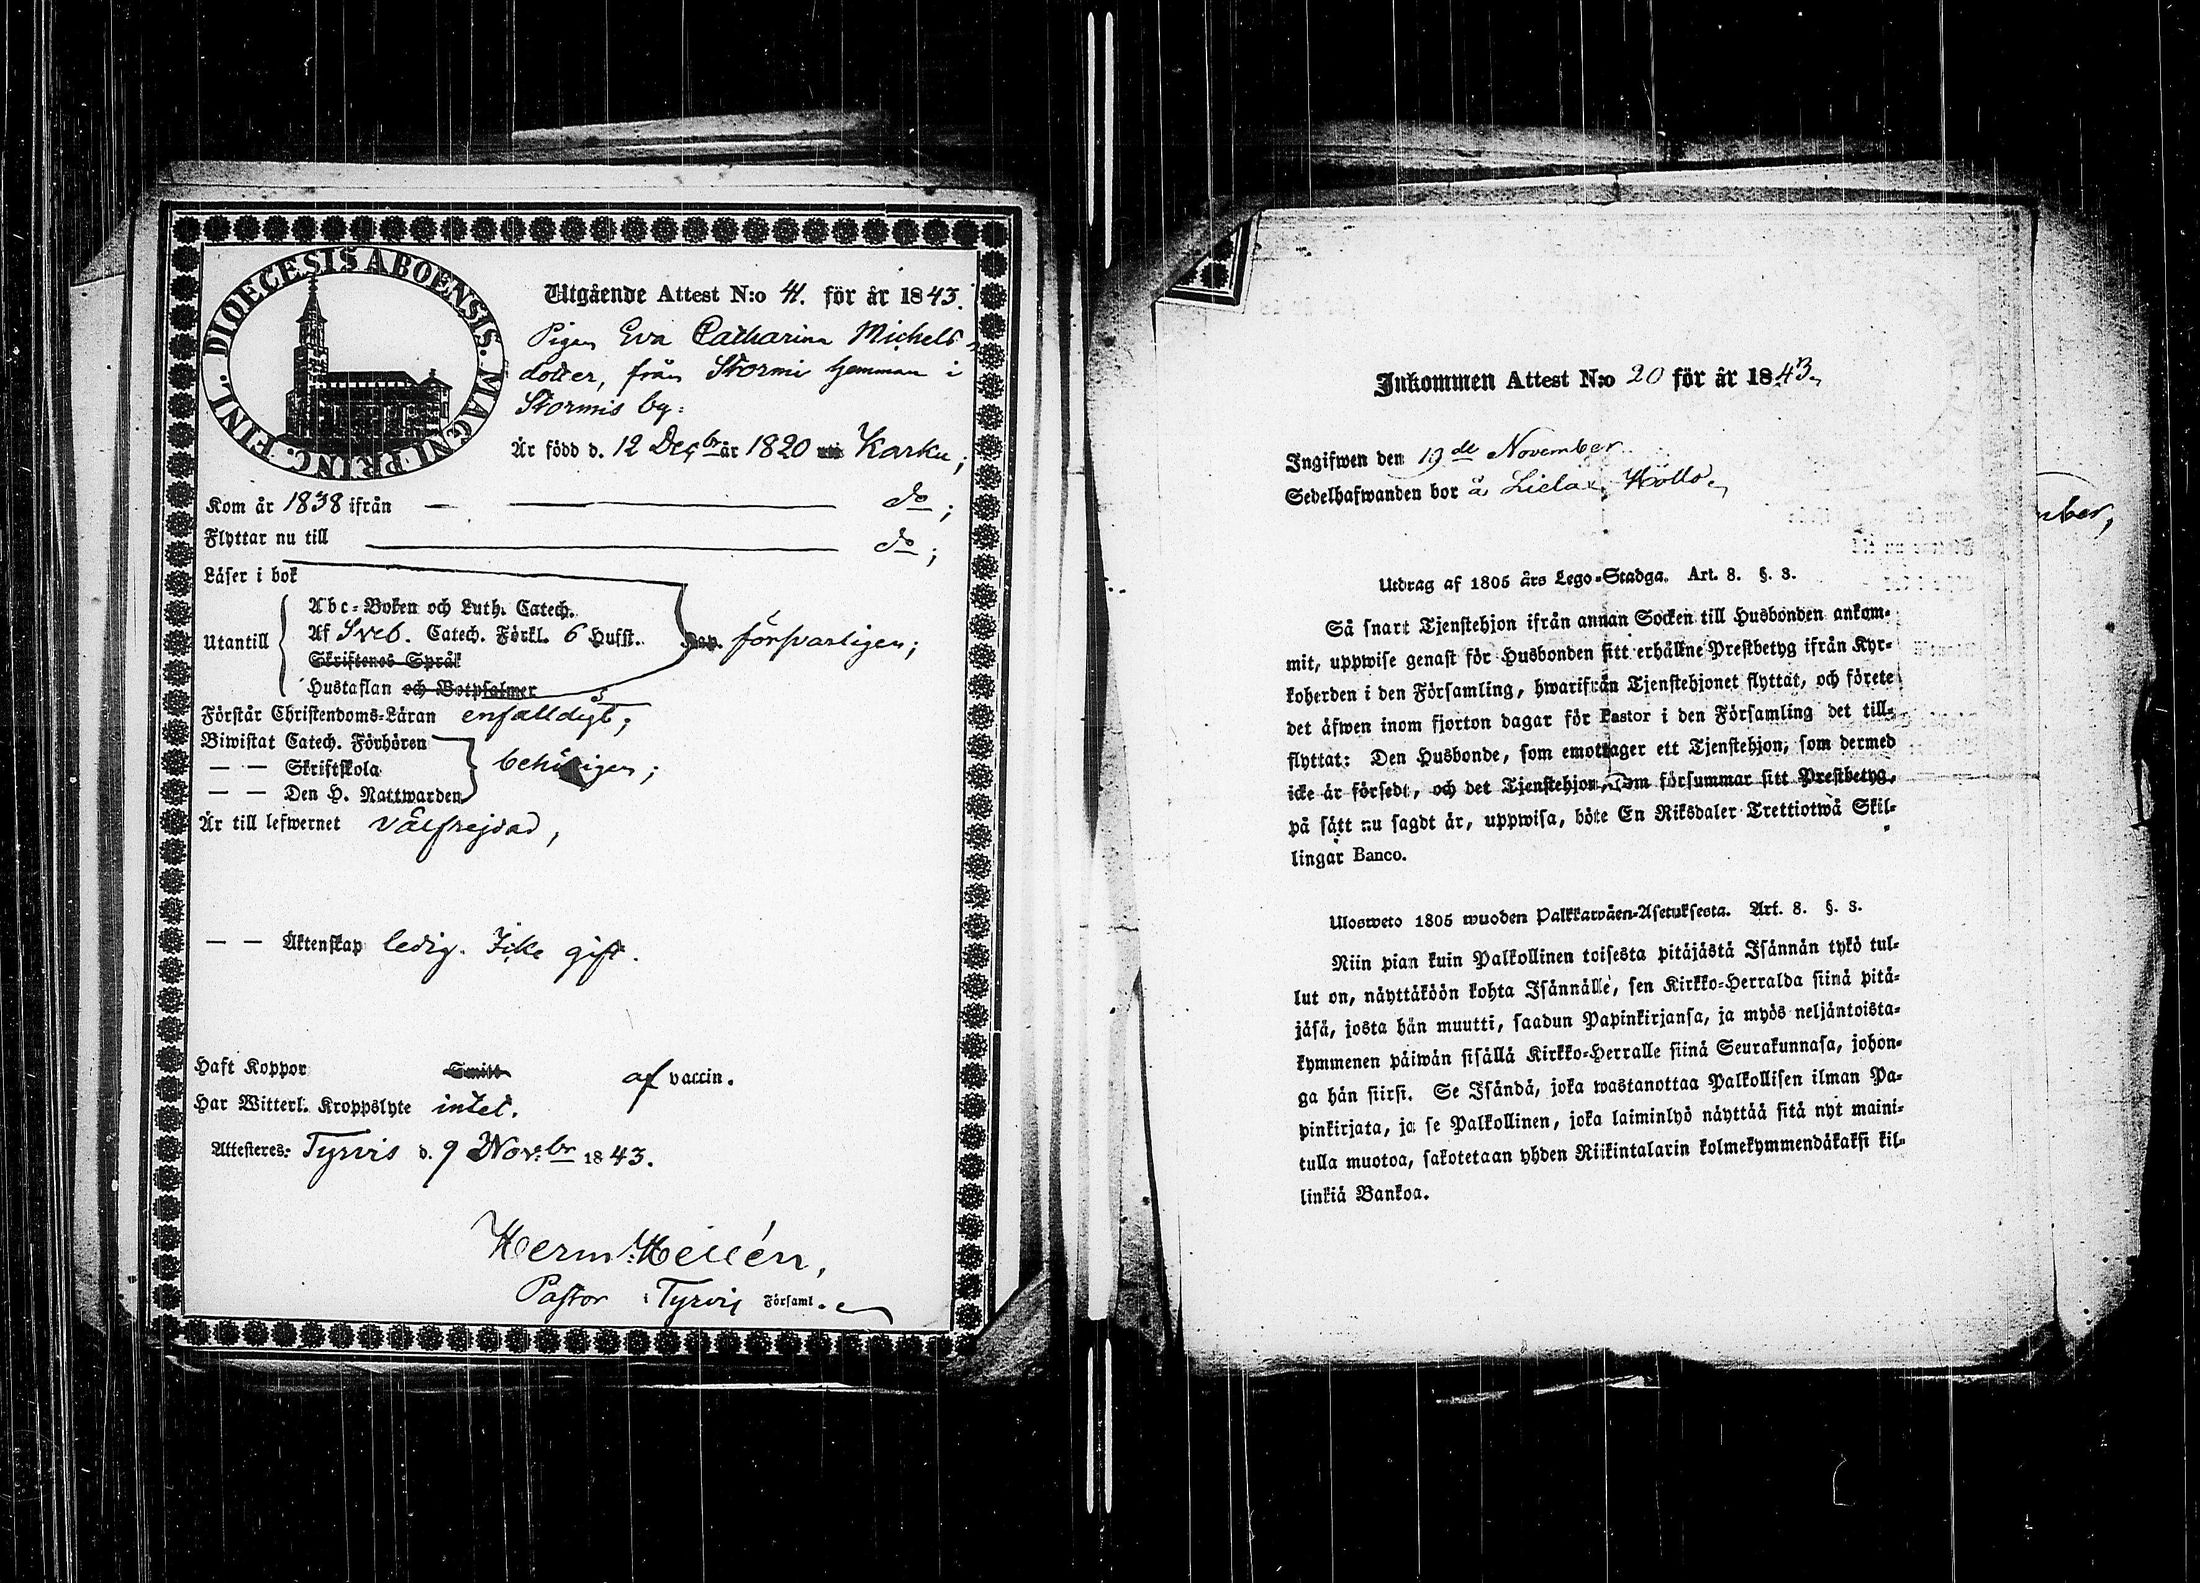 DIOECESIS ABOENSIS. MAGNI PRINC. FINL.
Utgående Attest N:o 41. för år 1843.
Pigan Eva Catharina Michels-
dotter, från Stormi hemman i
Stormis by:
Är född d. 12 Decbr år 1820 uti Karku;
Kom år 1838 ifrån — do;
Flyttar nu till — do;
Läser i bok
Utantill
Abc-Boken och Luth. Catech.
Af Sveb. Catech. Förkl. 6 Hufst.
Skriftenes Språk
Hustaflan och Botpsalmer
försvarligen;
Förstår Christendoms-Läran enfalldigt;
Biwistat Catech. Förhören
— — Skriftskola
— — Den H. Nattwarden
behörigen;
Är till lefwernet välfrejdad,
— — Äktenskap ledig. Icke gift.
Haft Koppor Smitt af vaccin.
Har Witterl. Kroppslyte intet.
Attesteres: Tyrvis d. 9 Nov:br 1843.
Herm. Hellén,
Pastor i Tyrvis Församl.
Inkommen Attest N:o 20 för år 1843.
Ingifwen den 19de November
Sedelhafwanden bor å
mber,
Utdrag af 1805 års Lego-Stadga. Art. 8. §. 3.
Så snart Tjenstehjon ifrån annan Socken till Husbonden ankom-
mit, uppwise genast för Husbonden sitt erhållne Prestbetyg ifrån Kyr-
koherden i den Församling, hwarifrån Tjenstehjonet flyttat, och förete
det äfwen inom fjorton dagar för Pastor i den Församling det till-
flyttat: Den Husbonde, som emottager ett Tjenstehjon, som dermed
icke är försedt, och det Tjenstehjon, som försummar sitt Prestbetyg,
på sätt nu sagdt är, uppwisa, böte En Riksdaler Trettiotwå Skil-
lingar Banco.
Ulosweto 1805 wuoden Palkkawäen-Asetuksesta. Art. 8. §. 3.
Niin pian kuin Palkollinen toisesta pitäjästä Isännän tykö tul-
lut on, näyttäköön kohta Isännälle, sen Kirkko-Herralda siinä pitä-
jäsä, josta hän muutti, saadun Papinkirjansa, ja myös neljäntoista-
kymmenen päiwän sisällä Kirkko-Herralle siinä Seurakunnasa, johon-
ga hän siirsi. Se Isändä, joka wastanottaa Palkollisen ilman Pa-
pinkirjata, ja se Palkollinen, joka laiminlyö näyttää sitä nyt maini-
tulla muotoa, sakotetaan yhden Riikintalarin kolmekymmendäkaksi kil-
linkiä Bankoa.